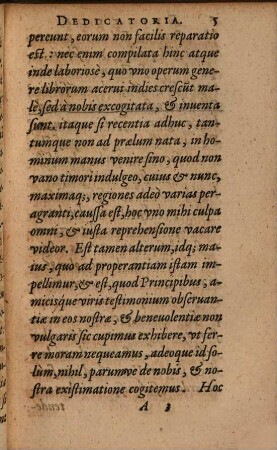 DEDICATORIA. 5
pereunt, eorum non facilis reparatio
est: nec enim compilata hinc atque
inde laboriosè, quo vno operum gene
re librorum acerui indies crescūt ma
lè, sed à nobis excogitata, & inuenta
sunt. itaque si recentia adhuc, tan-
tumque non ad prælum nata, in ho-
minum manus venire sino, quod non
vano timori indulgeo, cuius & nunc,
maximaq; regiones adeò varias per-
agranti, caussa est, hoc vno mihi culpa
omni, & iusta reprehensione vacare
videor. Est tamen alterum, idq; ma-
ius, quo ad properantiam istam im-
pellimur, & est, quod Principibus, a-
micisque viris testimonium obseruan-
tiæ in eos nostræ, & beneuolentiæ non
vulgaris sic cupimus exhibere, vt fer-
re moram nequeamus, adeoque id so-
lùm, nihil, parumve de nobis, & no-
stra existimatione cogitemus. Hoc
A 3